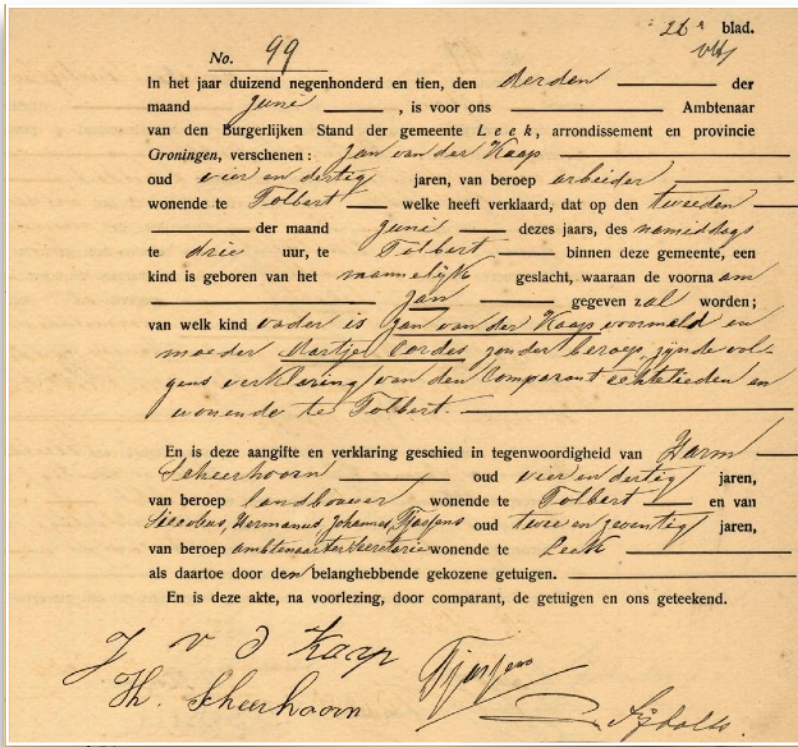 26e blad.
No. 99
In het jaar duizend negenhonderd en tien, den derden der
maand Juni, is voor ons Ambtenaar
van den Burgerlijken Stand der gemeente Leek, arrondissement en provincie
Groningen, verschenen: Jan van der Kaap
oud vier en dertig jaren, van beroep arbeider
wonende te Tolbert welke heeft verklaard, dat op den tweeden
der maand Juni dezes jaars, des namiddags
te drie uur, te Tolbert binnen deze gemeente, een
kind is geboren van het mannelijk geslacht, waaraan de voornaam
Jan gegeven zal worden;
van welk kind vader is Jan van der Kaap voormeld en
moeder Aartje Cordes zonder beroep, zijnde vol-
gens verklaring van den comparant echtelieden en
wonende te Tolbert.
En is deze aangifte en verklaring geschied in tegenwoordigheid van Harm
Scheerhoorn oud vier en dertig jaren,
van beroep landbouwer wonende te Tolbert en van
Hermannus, Johannes, Tjassens oud twee en zeventig jaren,
van beroep ambtenaar ter secretarie wonende te Leek
als daartoe door den belanghebbende gekozene getuigen.
En is deze akte, na voorlezing, door comparant, de getuigen en ons geteekend.
J v d Kaap
H. Scheerhoorn
Tjassens
Sijbolts.